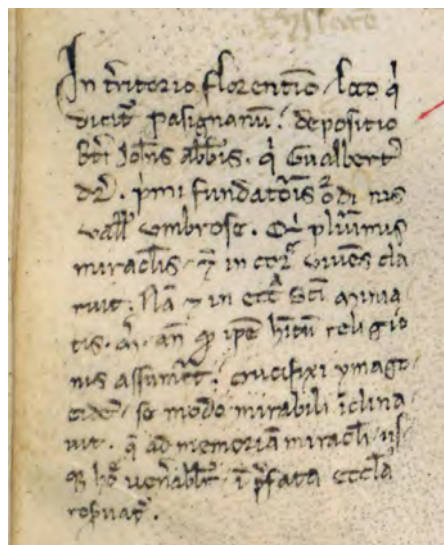 In tr̄ritorio florentīo / loco qⁱ
dicit᷑ pasignanū: depositio
Sc̄i Joh̄is abb̄is. qⁱ Gualbert᷒
dr̄. pⁱmi fundatōis nis
vall̄ umbrose. Qⁱ plurimis
miracl̄is. ⁊ in viuēs cla
ruit. Nā ⁊ in ecc̄a Sc̄i minia
tis. añ ip̄e h̄itū religio
nis assumēt: crucifixi ymago
eidē / se modo mirabili īclina
uit. q̄ ad memoriā miracl̄i us
qꝫ ho᷒ uen̄abil̄r ī pͤfata eccl̄a